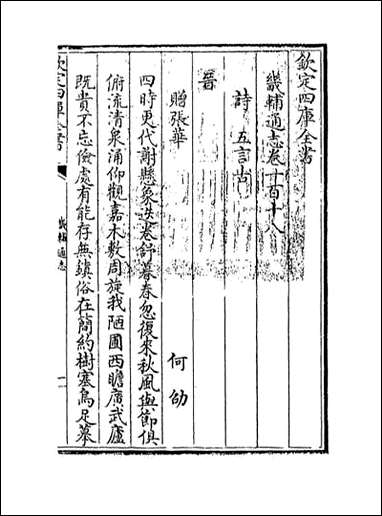 欽定四庫全書
畿輔通志卷一百十八
詩 五言古
晉
贈張華 何劭
四時更代謝懸象迭卷舒暮春忽復來秋風與節俱
俯流清泉涌仰觀嘉木敷周旋我陋圃西瞻廣武廬
既貴不忘儉處有能存無鎮俗在簡約樹塞焉足摹
欽定四庫全書
畿輔通志
一